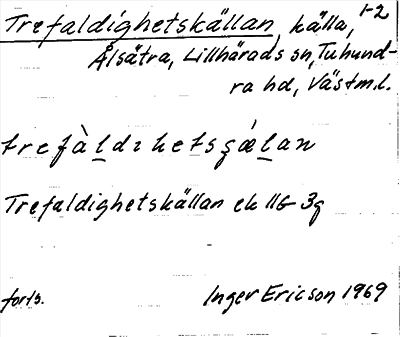 Trefaldighetskällan, källa, 1-2
Ålsätra, Lillhärads sn, Tuhund-
ra hd, Västm.l.
trefàldıhetsçǽlan
Trefaldighetskällan ek 11G 3g
forts. Inger Ericson 1969